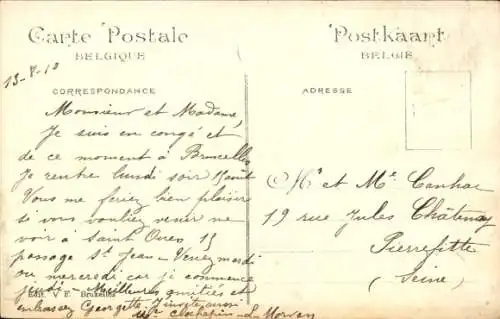 Carte Postale
BELGIQUE
Postkaart
BELGIË
13-8-10
CORRESPONDANCE
ADRESSE
Monsieur et Madame,
Je suis en congé et
de ce moment à Bruxelles
Je rentre lundi soir 15 août
Vous me feriez bien plaisir
si vous vouliez venir me
voir à Saint Ouen 15
passage St Jean – Venez mardi
ou mercredi car je commence
jeudi – Meilleures amitiés et
embrassez Georgette J'invite aussi
Mr et Me
19 rue Jules Châtenay
Pierrefitte
(Seine)
Edit. V. F. Bruxelles